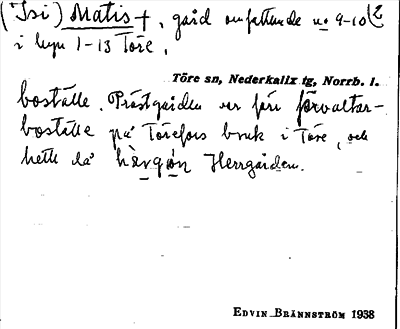 (Isi) Matis +, gård omfattande no 9-10 (2
i byn 1-13 Töre,
Töre sn, Nederkalix tg, Norrb. l.
boställe. Prästgården var förr förvaltar-
boställe på Törefors bruk i Töre, och
hette då hærgọn Herrgården.
EDVIN BRÄNNSTRÖM 1938